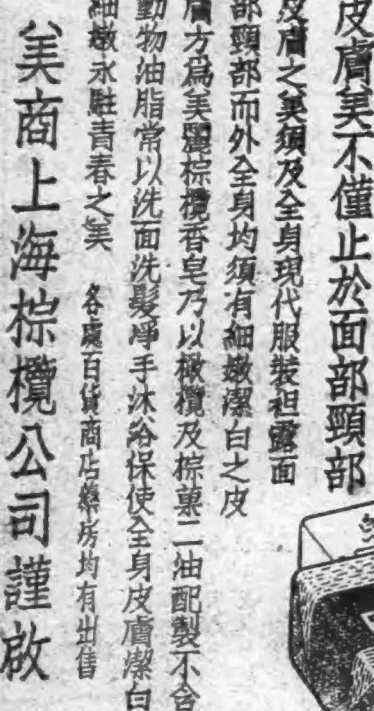 皮膚美不僅止於面部頸部
皮膚之美須及全身現代服裝袒露面
部頸部而外全身均須有細嫩潔白之皮
膚方爲美麗棕欖香皂乃以橄欖及棕菓二油配製不含
動物油脂常以洗面洗髮淨手沐浴保使全身皮膚潔白
細嫩永駐青春之美 各處百貨商店藥房均有出售
美商上海棕欖公司謹啟